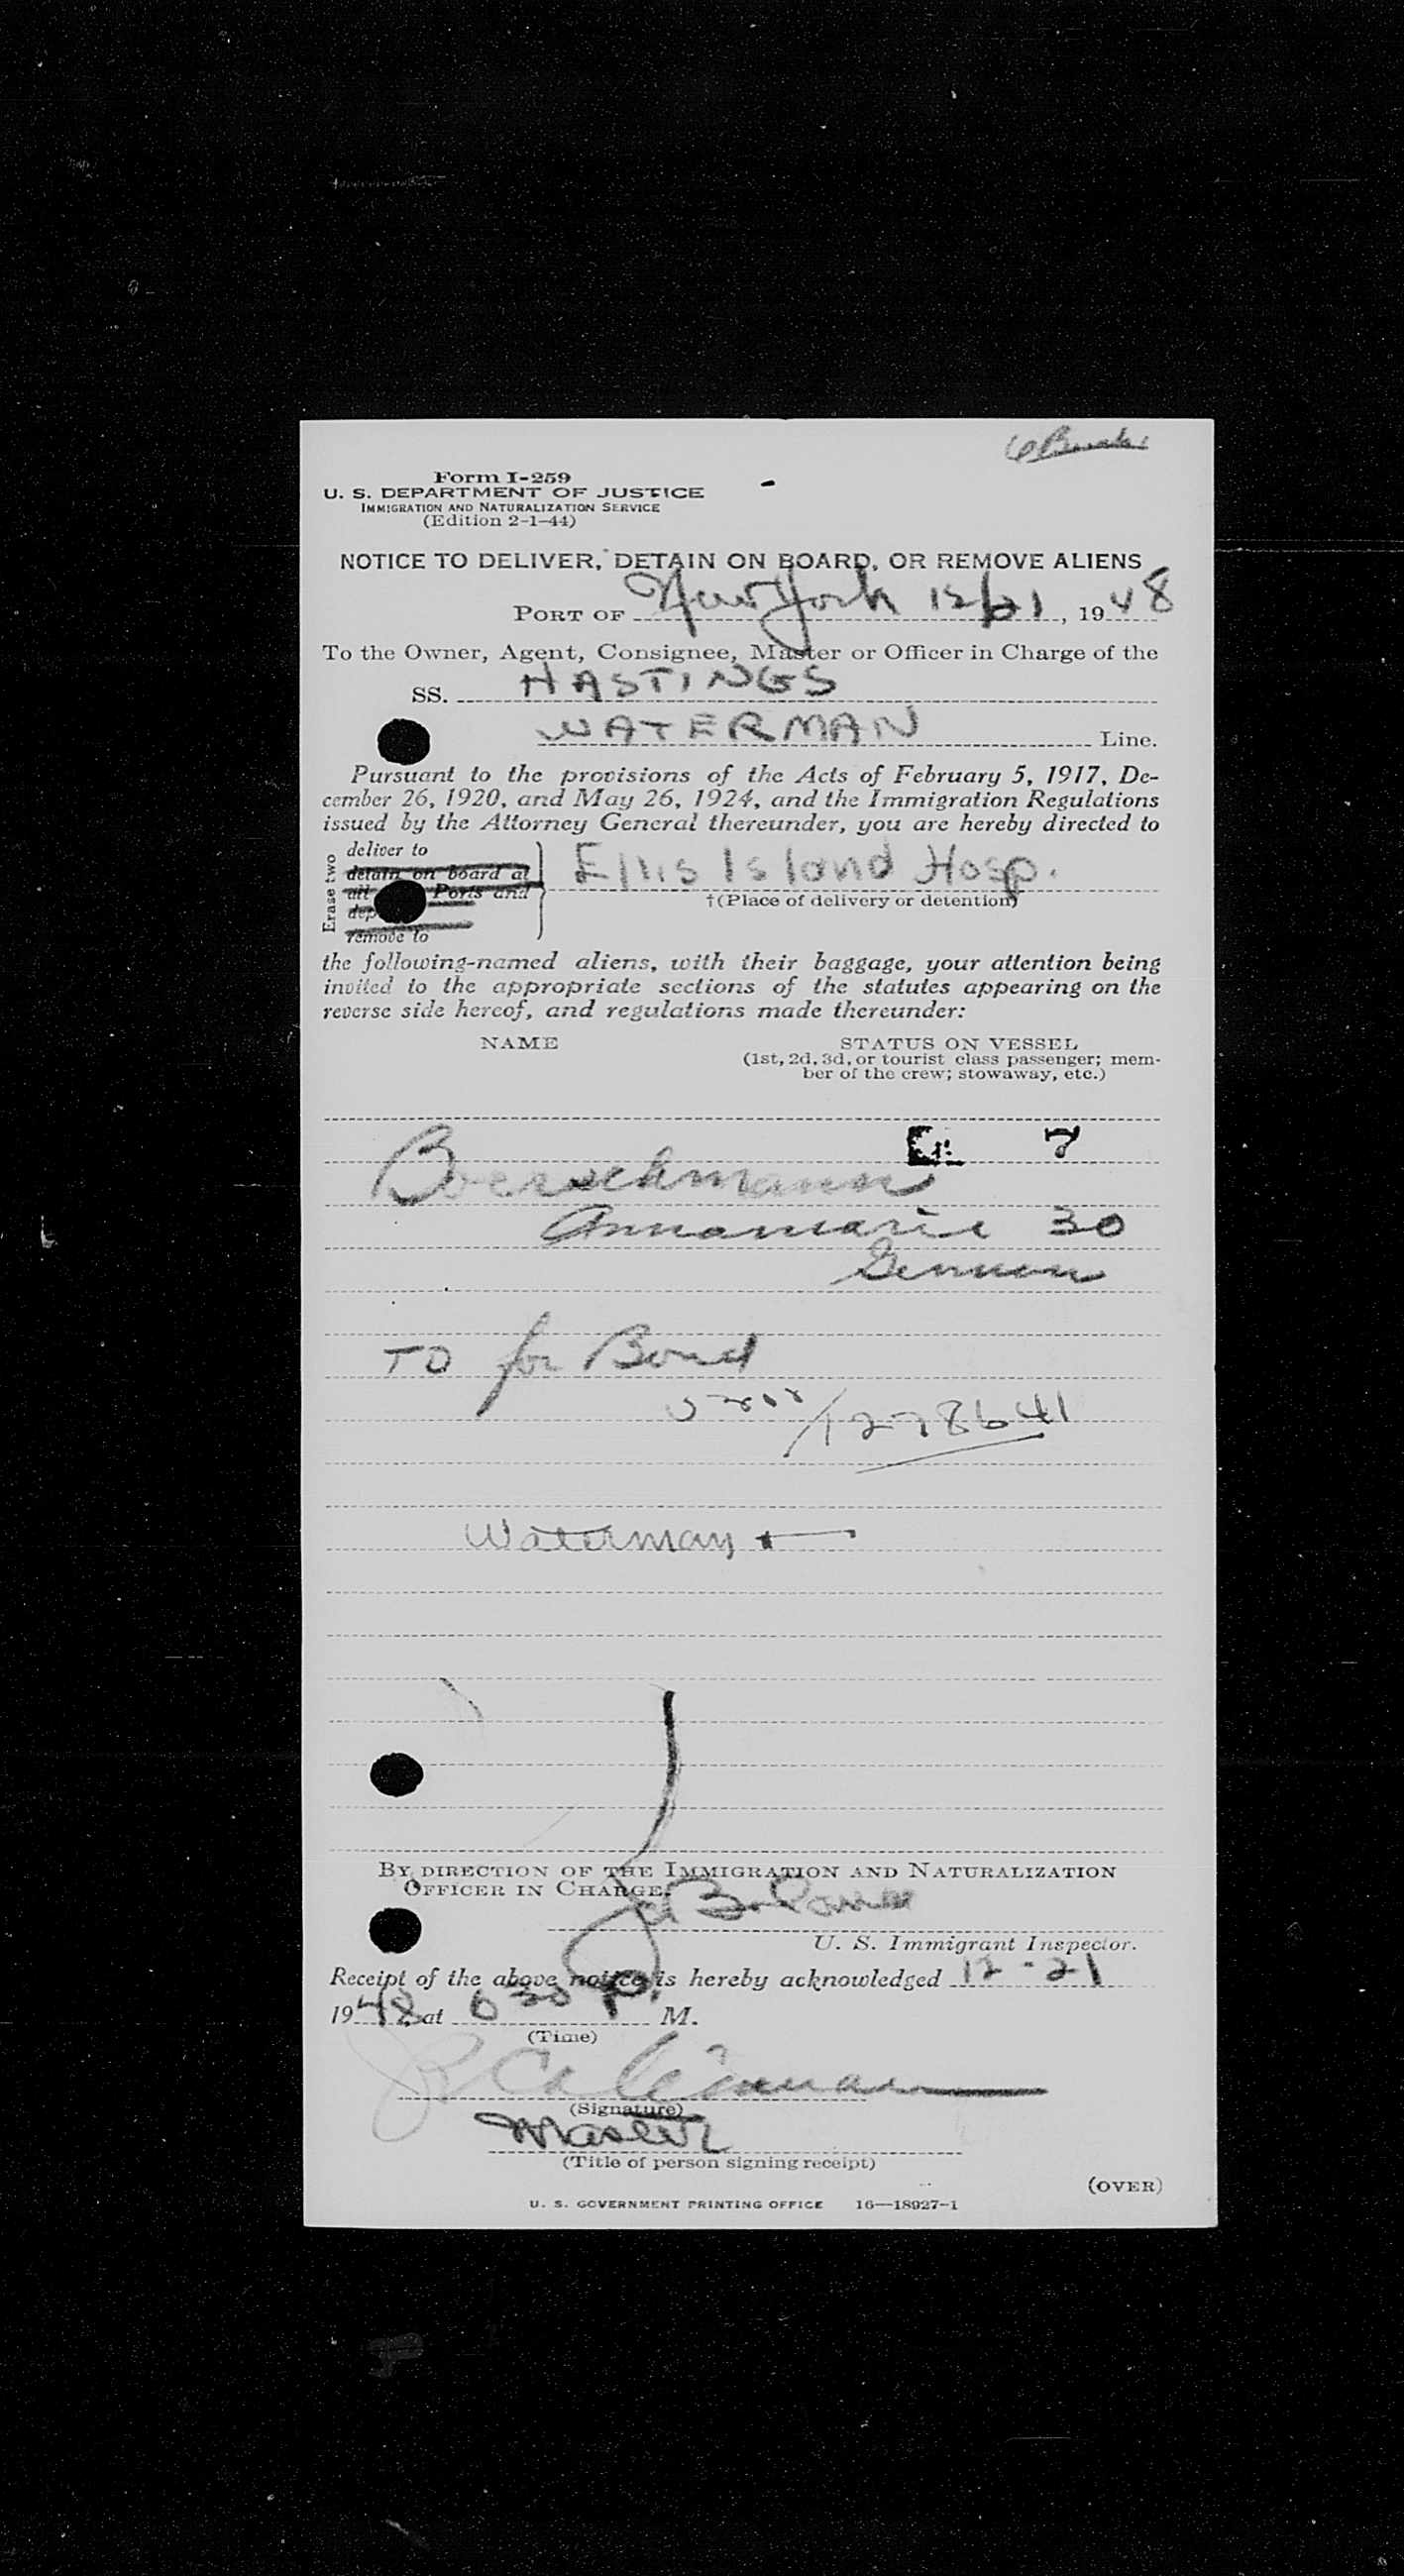 Form I-259
U. S. DEPARTMENT OF JUSTICE
IMMIGRATION AND NATURALIZATION SERVICE
(Edition 2-1-44)
NOTICE TO DELIVER, DETAIN ON BOARD, OR REMOVE ALIENS
PORT OF New York 12/21, 1948
To the Owner, Agent, Consignee, Master or Officer in Charge of the
SS. HASTINGS
WATERMAN Line.
Pursuant to the provisions of the Acts of February 5, 1917, De-
cember 26, 1920, and May 26, 1924, and the Immigration Regulations
issued by the Attorney General thereunder, you are hereby directed to
Erase two
deliver to
detain on board at
all Ports and
remove to
Ellis Island Hosp.
†(Place of delivery or detention)
the following-named aliens, with their baggage, your attention being
invited to the appropriate sections of the statutes appearing on the
reverse side hereof, and regulations made thereunder:
NAME
STATUS ON VESSEL
(1st, 2d, 3d, or tourist class passenger; mem-
ber of the crew; stowaway, etc.)
7
Boerschmann
Annamarie 30
German
TD for Bond
1278641
Waterman
BY DIRECTION OF THE IMMIGRATION AND NATURALIZATION
OFFICER IN CHARGE.
U. S. Immigrant Inspector.
Receipt of the above notice is hereby acknowledged 12-21
1948 at 630 P. M.
(Time)
(Signature)
Master
(Title of person signing receipt)
(OVER)
U. S. GOVERNMENT PRINTING OFFICE 16—18927-1